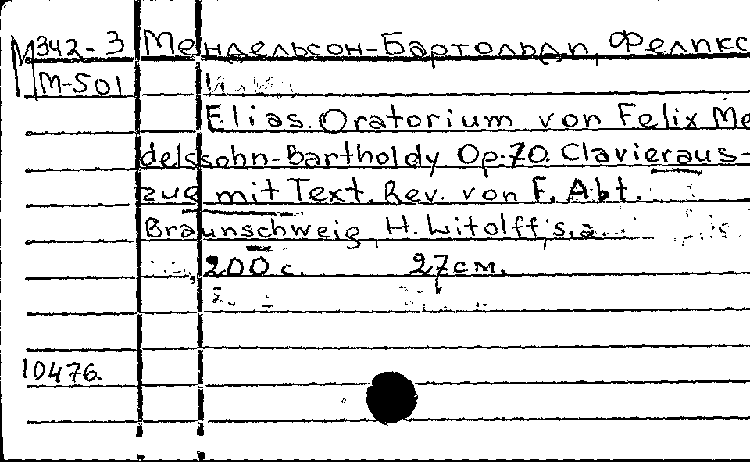 М342-3 Мендельсон-Бартольди, Феликс
М-501
Elias. Oratorium von Felix Me
delssohn-Bartholdy Op.70. Clavieraus-
zug mit Text. Rev. von F. Abt.
Braunschweig, H. Litolff, s.a.
200 с. 27 см.
10476.